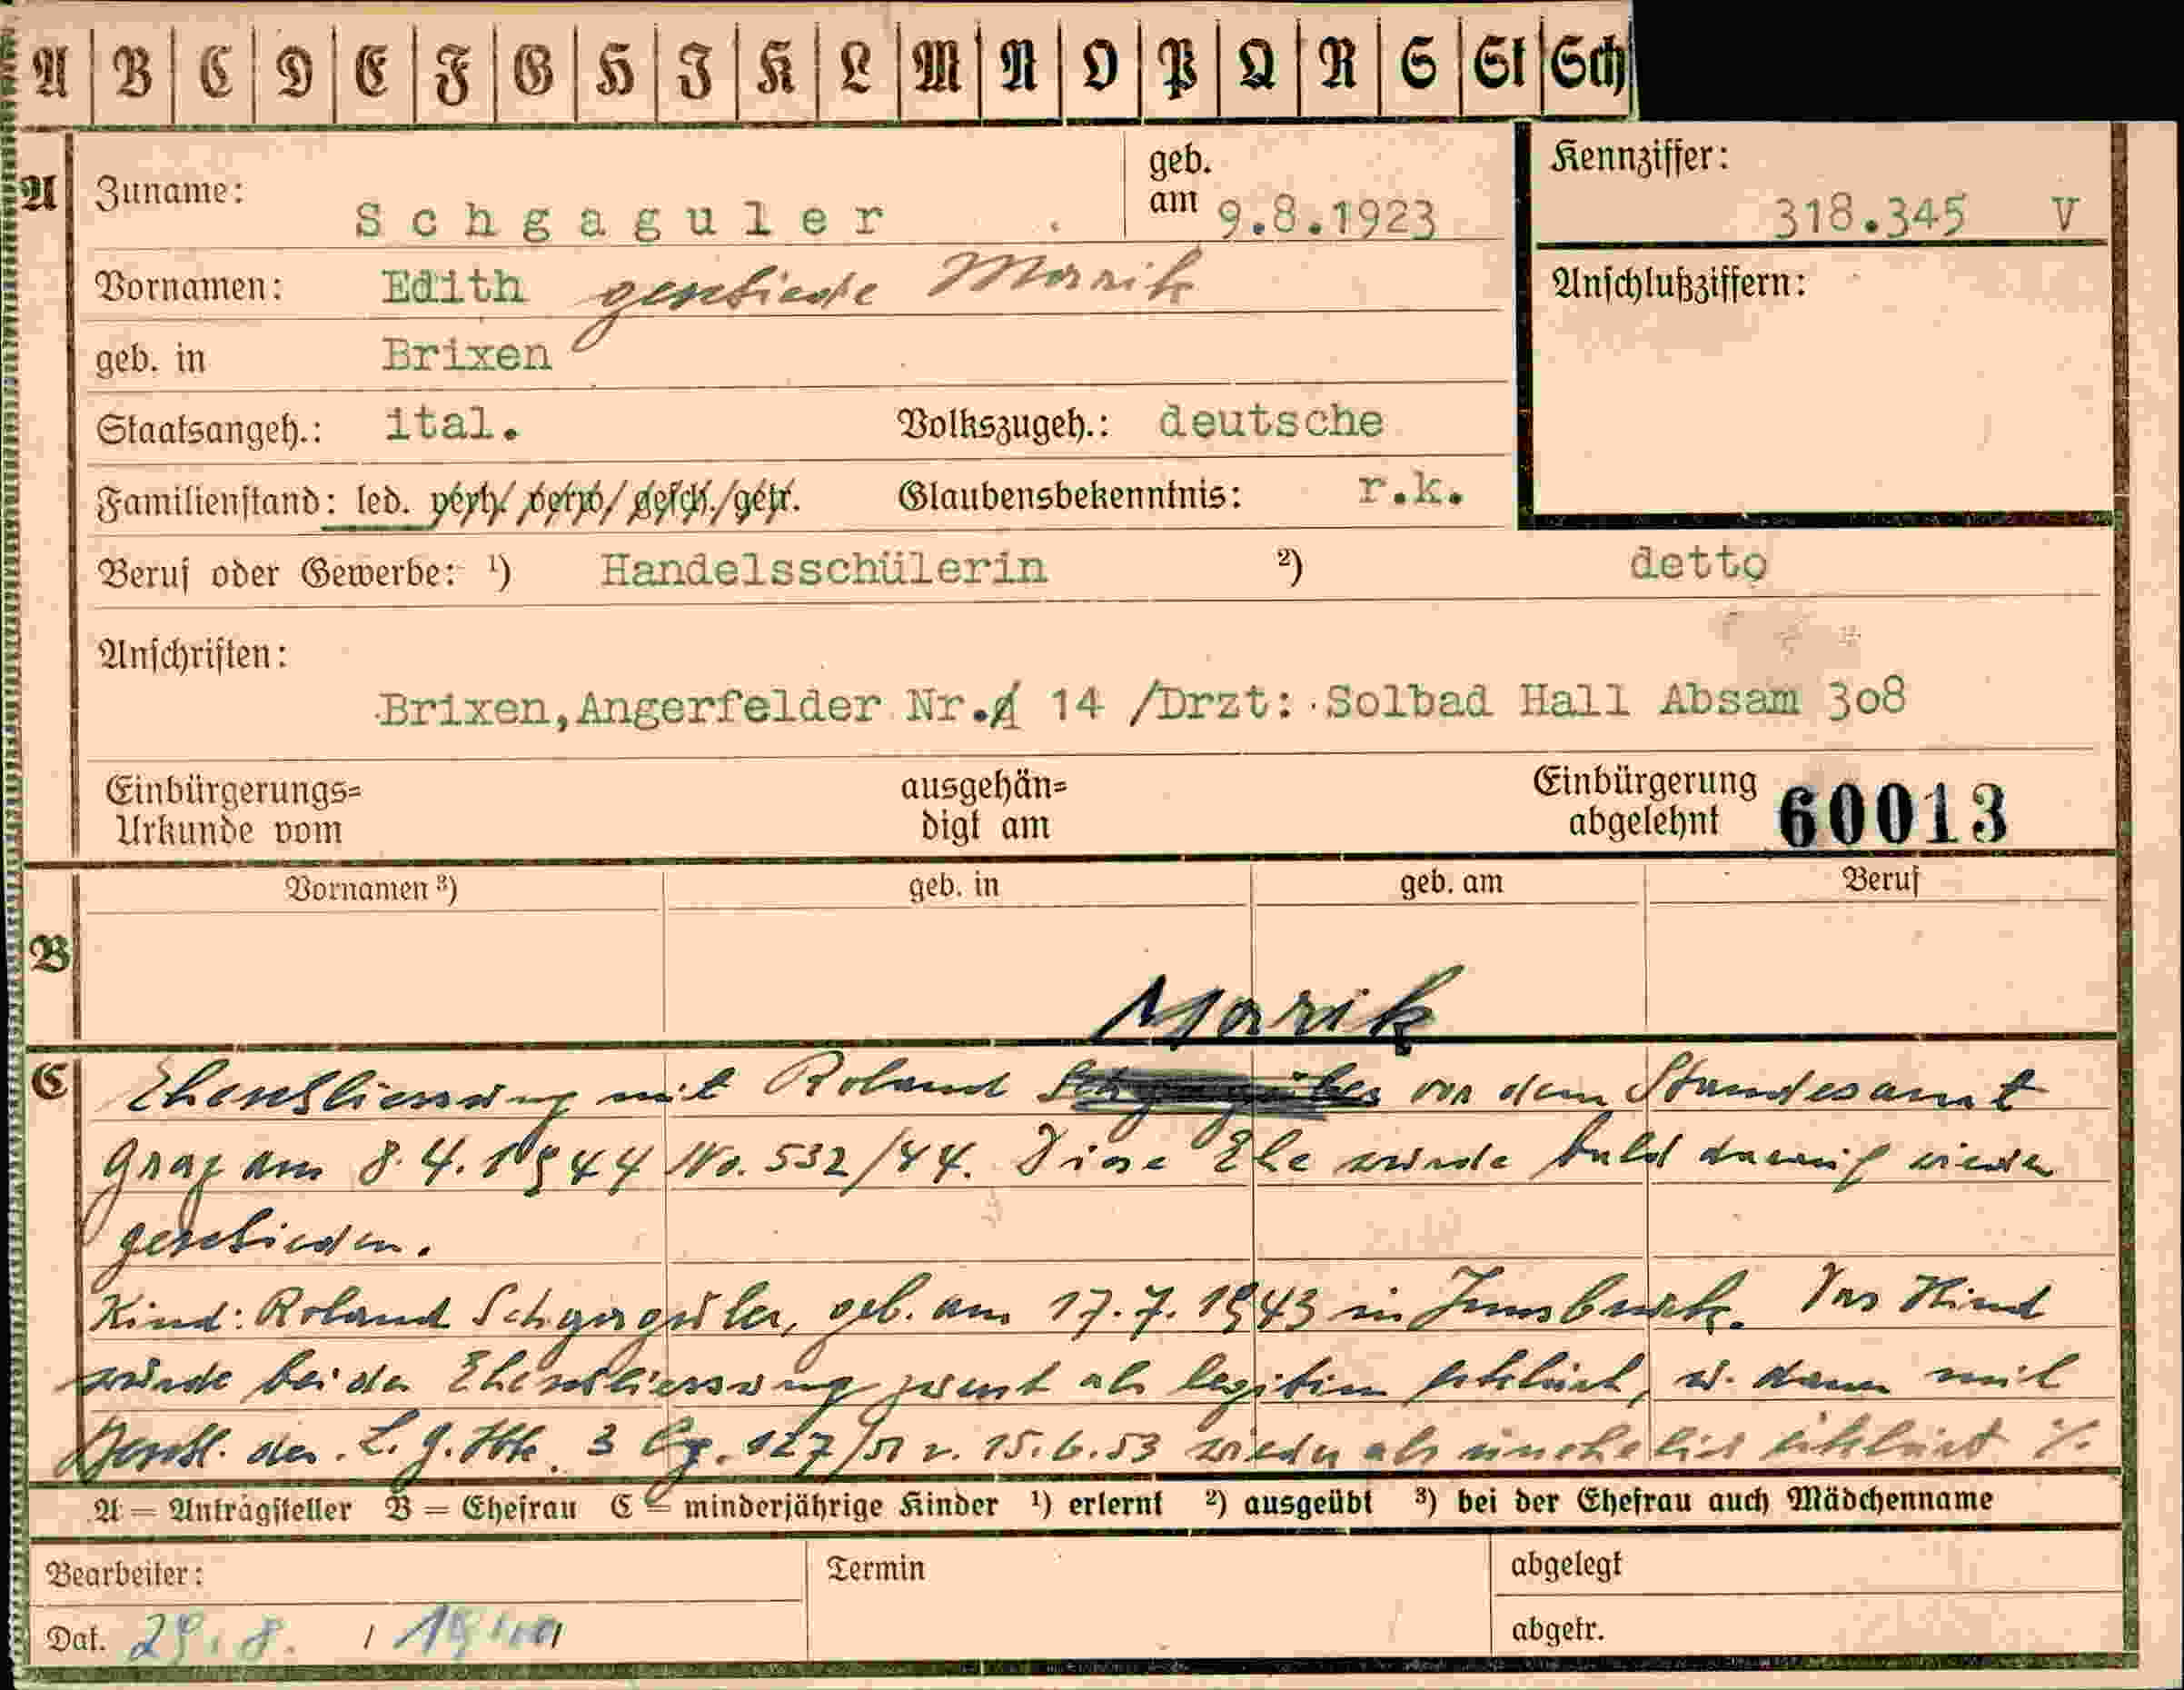 A B C D E F G H I K L M N O P Q R S St Sch
A
Zuname: Schgaguler
geb. am 9.8.1923
Kennziffer: 318.345 V
Vornamen: Edith geschiede Marik
Anschlußziffern:
geb. in Brixen
Staatsangeh.: ital. Volkszugeh.: deutsche
Familienstand: led. verh./ verw./ gesch./getr. Glaubensbekenntnis: r.k.
Beruf oder Gewerbe: ¹) Handelsschülerin ²) detto
Anschriften:
Brixen,Angerfelder Nr. 14 /Drzt: Solbad Hall Absam 308
Einbürgerungs=
Urkunde vom
ausgehän=
digt am
Einbürgerung
abgelehnt 60013
Vornamen ³) geb. in geb. am Beruf
B
Marik
C
Eheschliessung mit Roland vor dem Standesamt
Graz am 8.4.1944 No. 532/44. Diese Ehe wurde bald darauf wieder
geschieden.
Kind: Roland Schgaguler, geb. am 17.7.1943 in Innsbruck. Das Kind
wurde bei der Eheschliessung zuerst als legitim erklärt, u. dann mit
des L.G. Ibk. 3 Cg. 127/51 v. 15.6.53 wieder als unehelich erklärt %.
A = Antragsteller B = Ehefrau C = minderjährige Kinder ¹) erlernt ²) ausgeübt ³) bei der Ehefrau auch Mädchenname
Bearbeiter:
Termin
abgelegt
Dat. 29.8. /
abgetr.